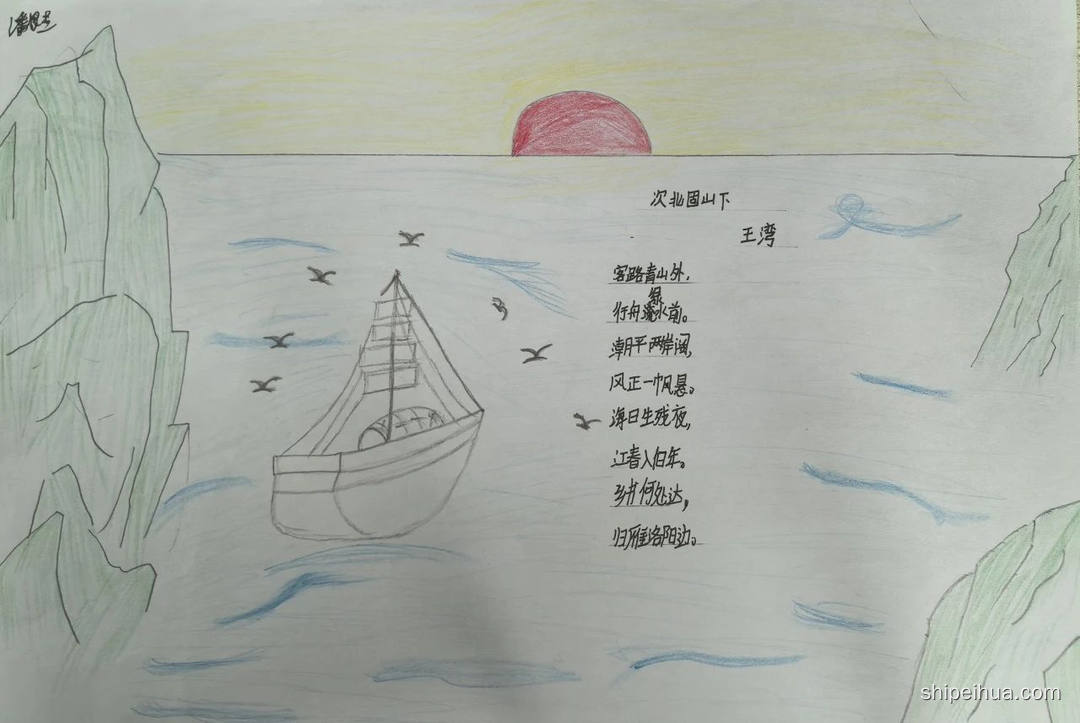 次北固山下
王湾
客路青山外，
行舟绿水前。
潮平两岸阔，
风正一帆悬。
海日生残夜，
江春入旧年。
乡书何处达，
归雁洛阳边。
shipeihua.com